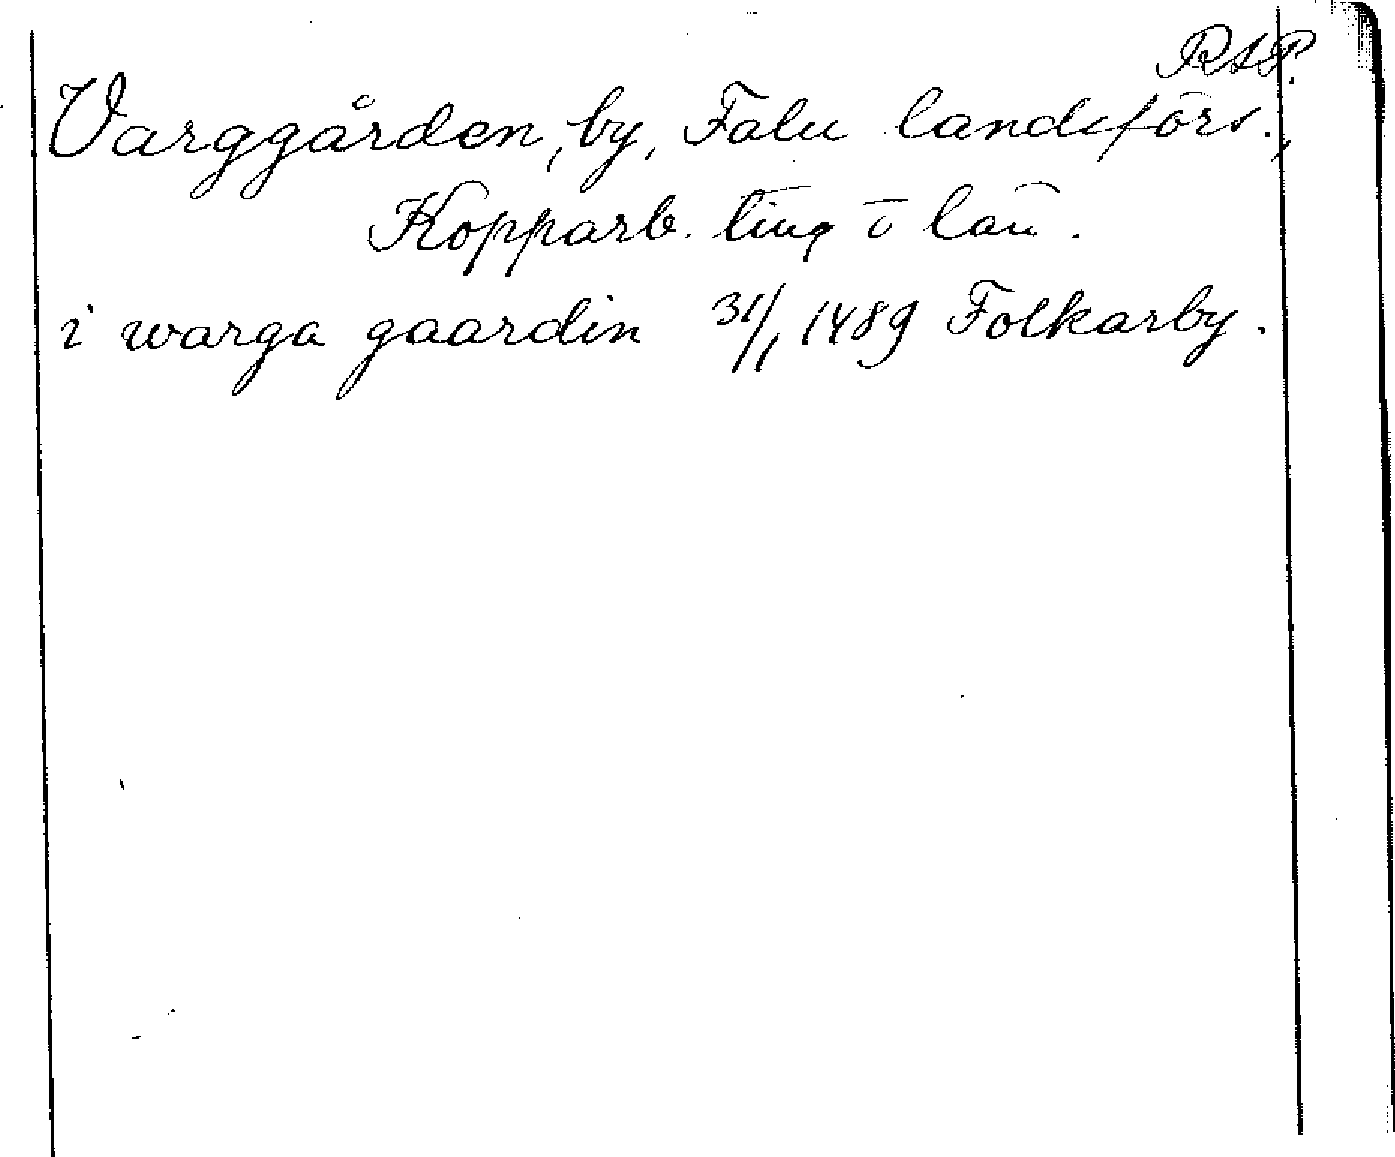 RAP.
Varggården, by, Falu landsförs.,
Kopparb. ting o län.
i warga gaardin 31/1 1489 Folkarby.